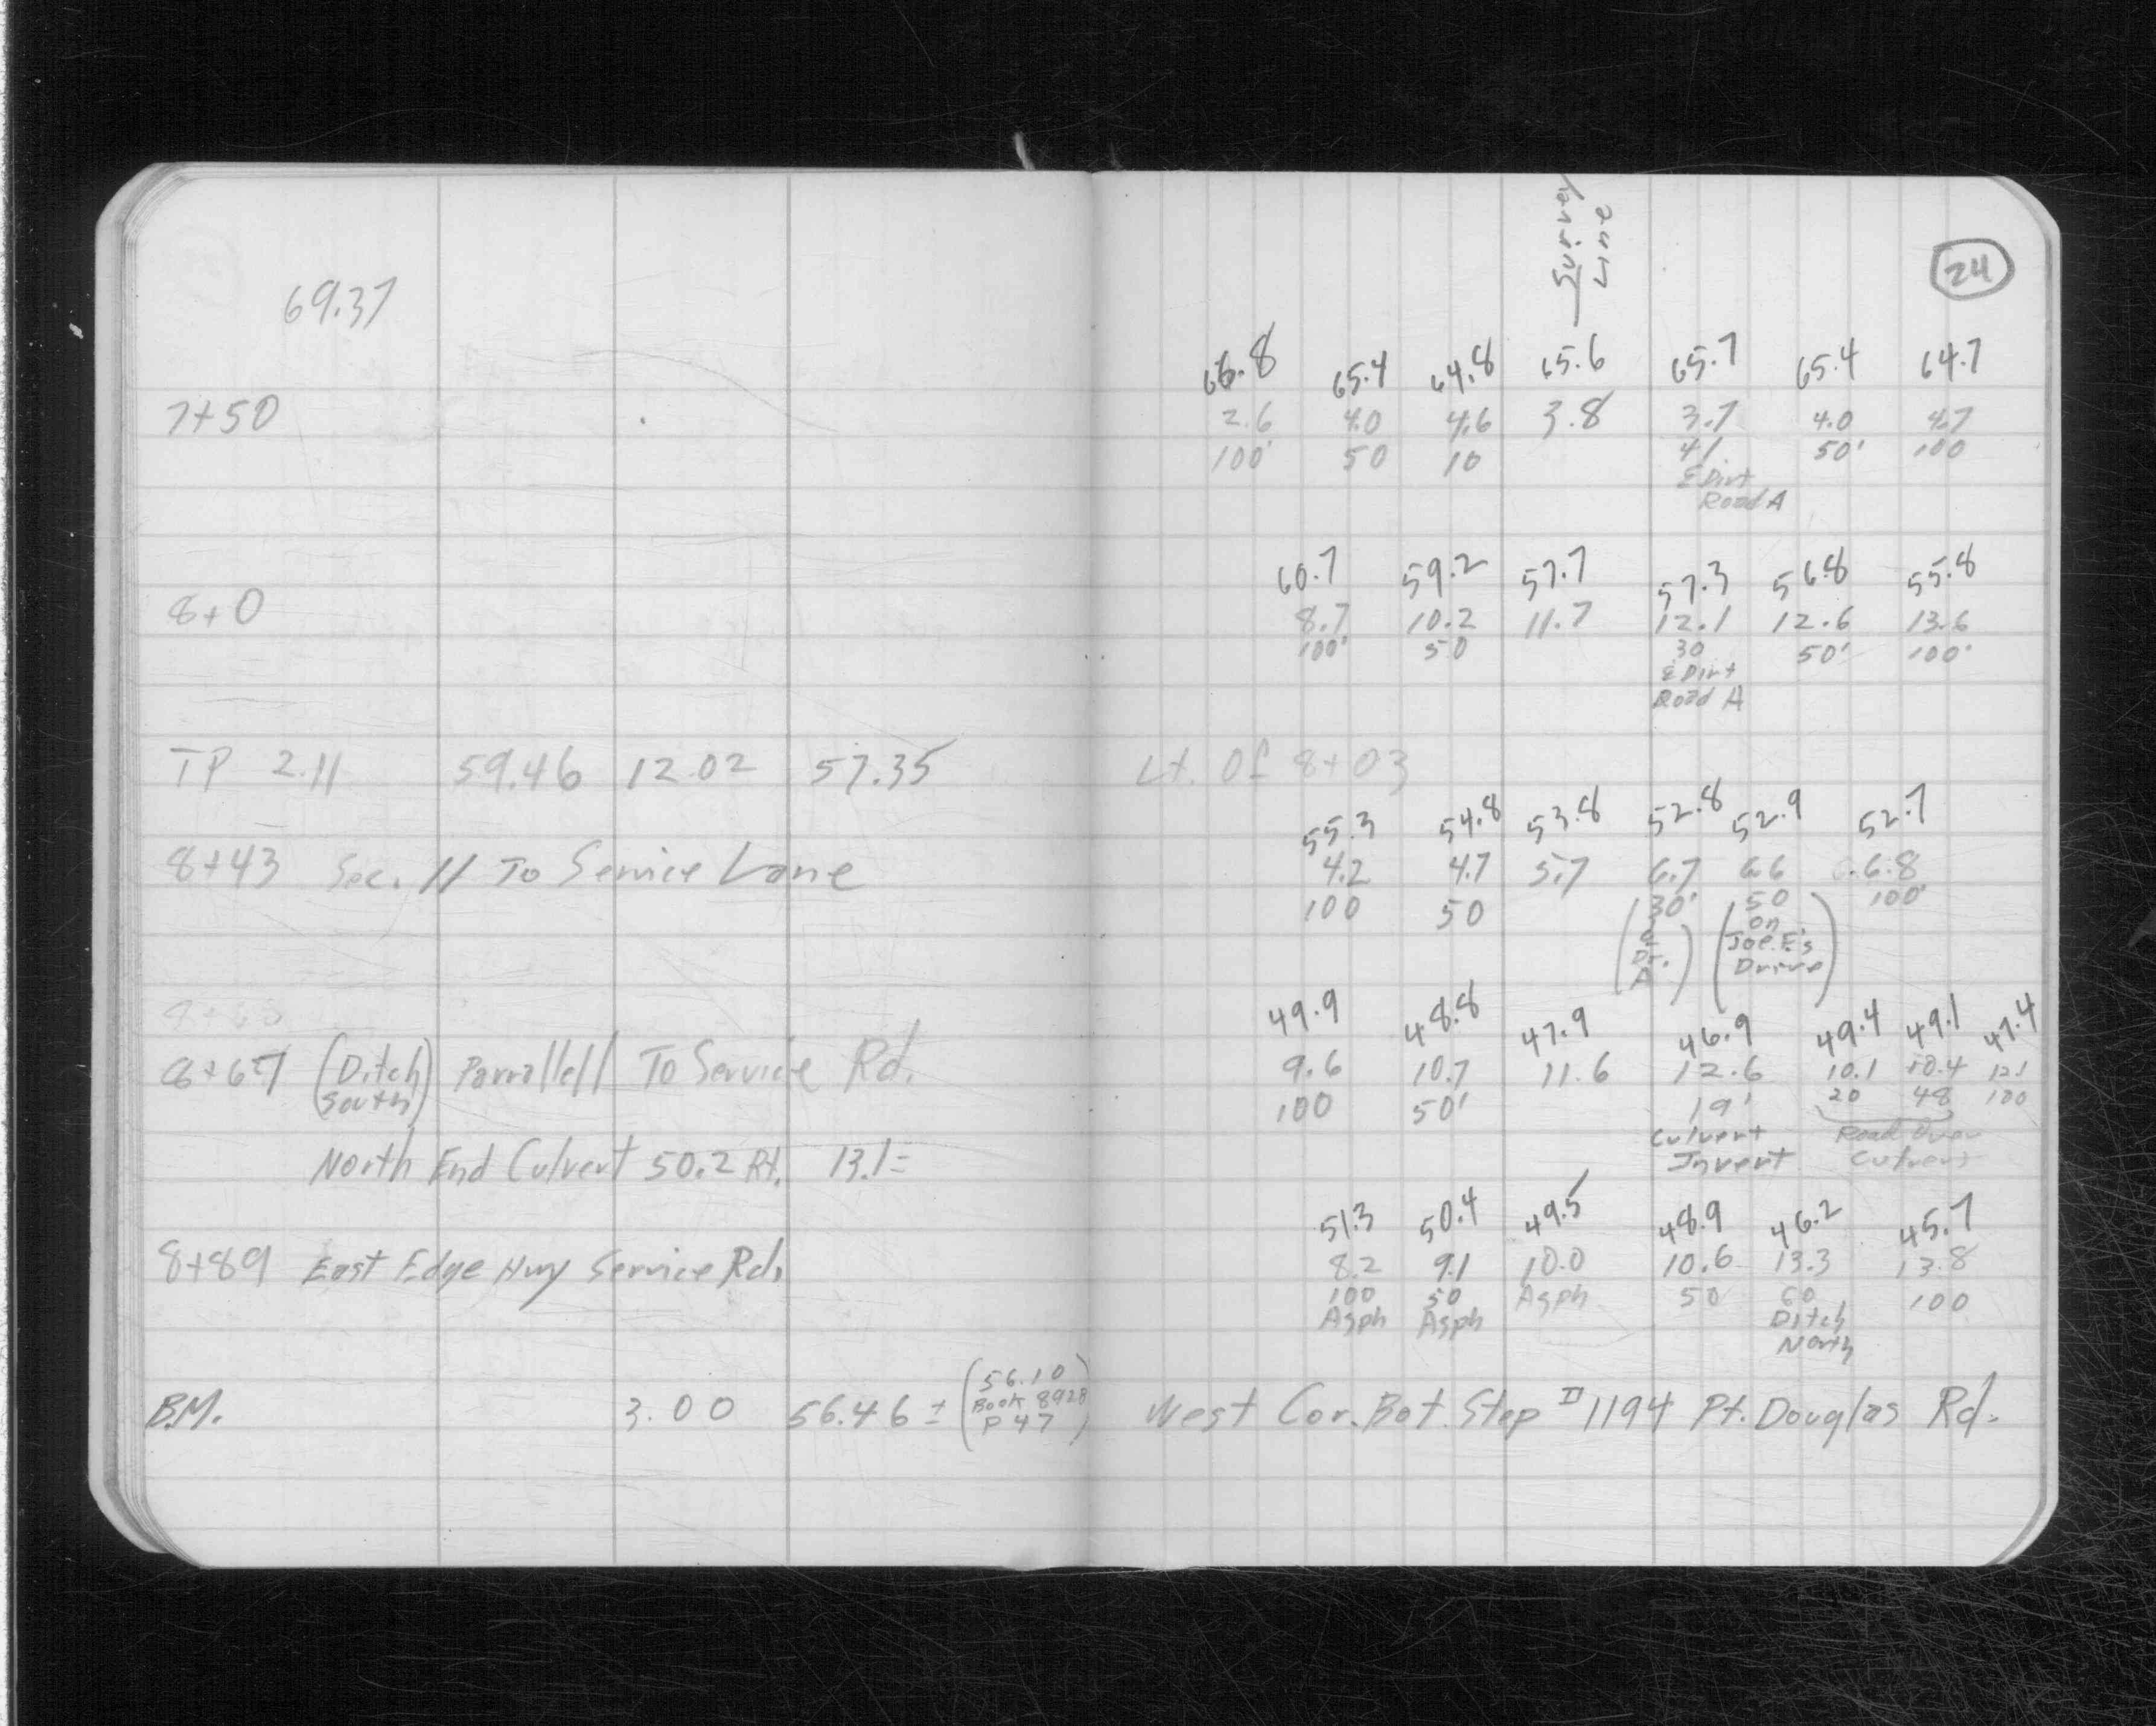 Survey
Line
24
69.37
66.8 65.4 64.8 65.6 65.7 65.4 64.7
7+50 2.6 4.0 4.6 3.8 3.7 4.0 4.7
100' 50 10 41 50' 100
₵ Dirt
Road A
60.7 59.2 57.7 57.3 56.8 55.8
8+0 8.7 10.2 11.7 12.1 12.6 13.6
100' 50 30 50' 100'
₵ Dirt
Road A
TP 2.11 59.46 12.02 57.35 Lt. Of 8+03
55.3 54.8 53.8 52.8 52.9 52.7
8+43 Sec. // To Service Lane 4.2 4.7 5.7 6.7 6.6 6.8
100 50 (30' (50 100'
₵ on
Dr. Joe E's
A) Drive)
49.9 48.8 47.9 46.9 49.4 49.1 47.4
8+67 (Ditch South) Parrallell To Service Rd. 9.6 10.7 11.6 12.6 10.1 10.4 12.1
100 50' 19' 20 48 100
Culvert Road Over
North End Culvert 50.2 Rt. 13.1= Invert Culvert
51.3 50.4 49.5 48.9 46.2 45.7
8+89 East Edge Hwy Service Rd. 8.2 9.1 10.0 10.6 13.3 13.8
100 50 Asph 50 60 100
Asph Asph Ditch
North
B.M. 3.00 56.46 ± (56.10 Book 8928 P 47) West Cor. Bot. Step #1194 Pt. Douglas Rd.